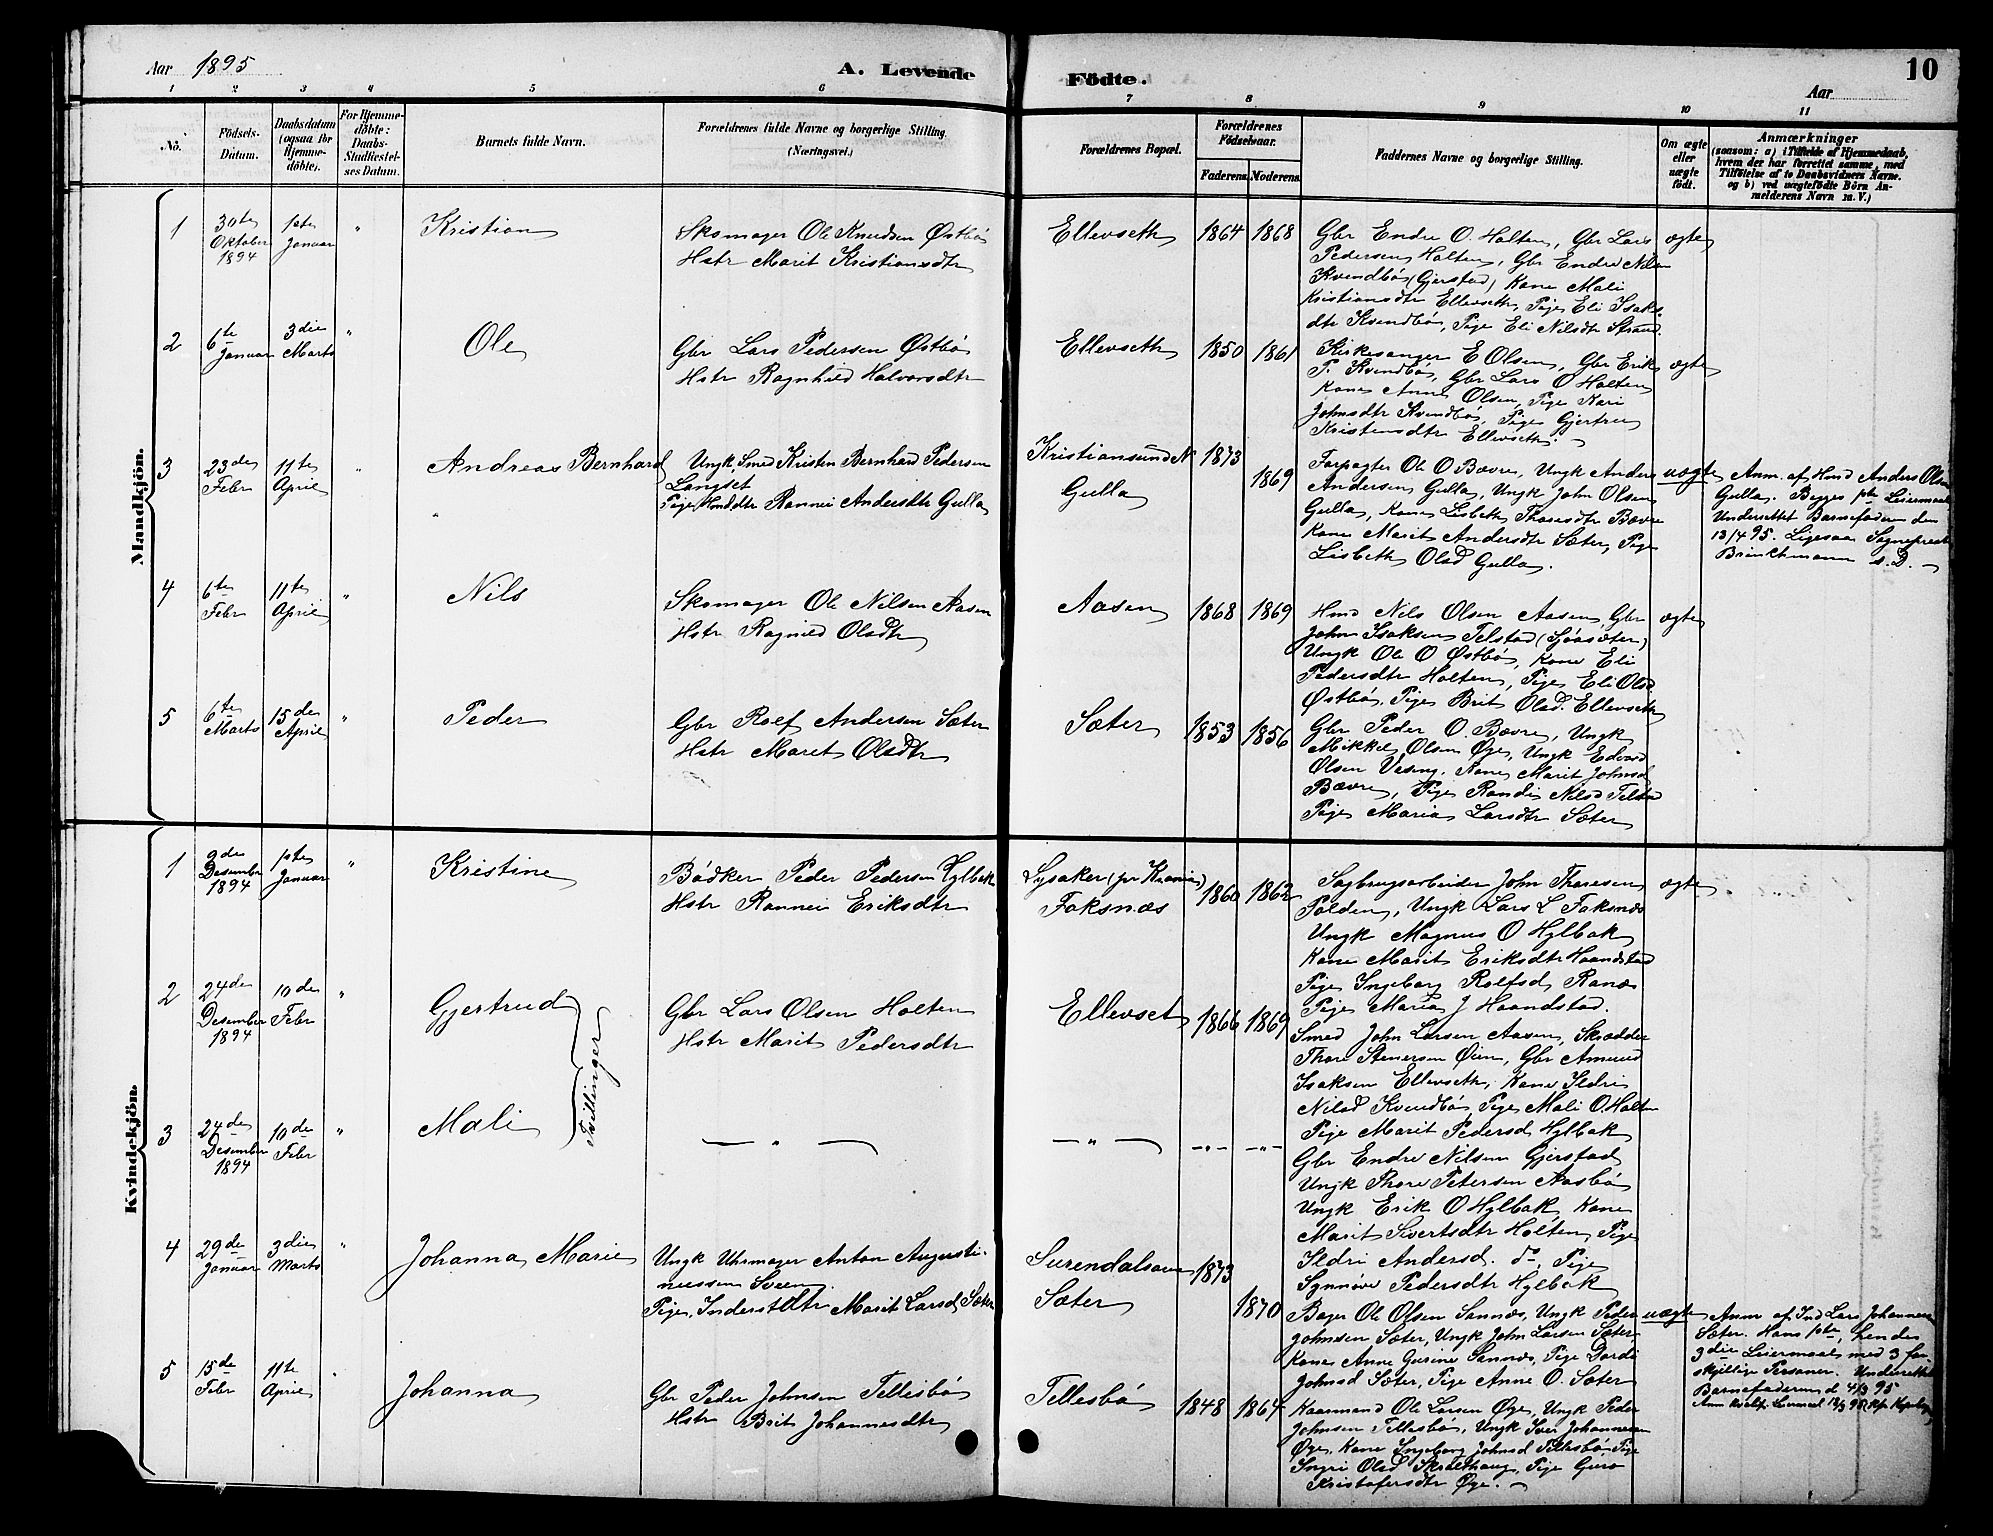 Aar 1895
A. Levende Födte.
10
Aar
1 2 3 4 5 6 7 8 9 10 11
No.
Födsels-Datum.
Daabsdatum (ogsaa for Hjemme-döbte).
For Hjemme-döbte: Daabs-Stadfæstel-ses Datum.
Barnets fulde Navn.
Forældrenes fulde Navne og borgerlige Stilling. (Næringsvei.)
Forældrenes Bopæl.
Forældrenes Födselsaar.
Faderens. Moderens.
Faddernes Navne og borgerlige Stilling.
Om ægte eller uægte födt.
Anmærkninger
(saasom: a) i Tilfælde af Hjemmedaab,
hvem der har forrettet samme, med
Tilföielse af to Daabsvidners Navne,
og b) ved uægtefödte Börn An-
melderens Navn m. V.)
Mandkjön.
1 30te Oktober 1894 1ste Januar " Kristian
Skomager Ole Knudsen Østbö
Hstr Marit Kristiansdtr
Ellevseth 1864 1868
Gbr Endre O. Holten, Gbr Lars
Pedersen Holten, Gbr Endre Nilsen
Kvendbö (Gjerstad) Kone Mali
Kristiansdtr Ellevseth, Pige Eli Isaks-
dtr Kvendbö, Pige Eli Nilsdtr Strand.
ægte
2 6te Januar 3die Marts " Ole
Gbr Lars Pedersen Østbö
Hstr Ragnhild Halvorsdtr
Ellevseth 1850 1861
Kirkesanger E Olsen, Gbr Erik
P. Kvendbö, Gbr Lars O Holten
Kone Anne Olsen, Pige Kari
Johnsdtr Kvendbö, Pige Gjertrud
Kristensdtr Ellevseth.
ægte
3 23de Febr 11te April " Andreas Bernhard
Ungk, Smed Kristen Bernhard Pedersen
Langset
Pige, Husmdtr Rannei Andersdtr Gulla
Kristiansund N 1873
Gulla 1869
Forpagter Ole O Bævre, Ungk Anders
Andersen Gulla, Ungk John Olsen
Gulla, Kone Lisbeth Thoresdtr Bævre
Kone Marit Andersdtr Sæter, Pige
Lisbeth Olsd Gulla.
uægte
Anm. af Hmd Anders Olsen
Gulla. Begges 1ste Leiermaal
Underrettet Barnefaderen den
13/4 95. Ligesaa Sogneprest
Brinchmann s. D.
4 6te Febr 11te April " Nils
Skomager Ole Nilsen Aasen
Hstr Ragnild Olsdtr
Aasen 1868 1869
Hmd Nels Olsen Aasen, Gbr
John Isaksen Telstad (Sjöasæter)
Ungk Ole O Østbö, Kone Eli
Pedersdtr Holten, Pige Eli Olsd
Østbö, Pige Brit Olsd. Ellevseth
ægte
5 6te Marts 15de April " Peder
Gbr Rolf Andersen Sæter
Hstr Marit Olsdtr
Sæter 1853 1856
Gbr Peder O. Bævre, Ungk
Mikkel Olsen Øye, Ungk Edvard
Olsen Vaseng, Kone Marit Johnsd
Bævre, Pige Randi Nilsd Telstad
Pige Maria Larsdtr Sæter
Kvindekjön.
1 Desember 1894 1ste Januar " Kristine
Bödker Peder Pedersen Hylbak
Hstr Rannei Eriksdtr
Lysaker (pr Krania)
Faksnæs 1860 1862
Sagbrugsarbeider John Thoresen
Polden, Ungk Lars L Faksnæs
Ungk Magnus O Hylbak
Kone Marit Eriksdtr Haandstad
Pige Ingeborg Rolfsd Ranæs
Pige Maria J Haandstad.
ægte
2 24de Desember 1894 10de Febr " Gjertrud
Gbr Lars Olsen Holten
Hstr Marit Pedersdtr
Ellevset 1866 1869
Smed John Larsen Aasen, Skrædder
Thore Stenersen Øien, Gbr Amund
Isaksen Ellevseth, Kone Ildri
Nilsd Kvendbö, Pige Mali O. Holten
Pige Marit Pedersd Hylbak
Tvillinger
3 24de Desember 1894 10de Febr " Mali
— " — — " — —"— —"—
Gbr Endre Nilsen Gjerstad
Ungk Thore Petersen Aasbö
Ungk Erik O Hylbak, Kone
Marit Sivertsdtr Holten, Pige
Ildri Andersd. do, Pige
Synnöve Pedersdtr Hylbak
4 29de Januar 3die Marts " Johanna Marie
Ungk Uhrmager Anton Augusti-
nussen Sveen
Pige, Inderstdtr Marit Larsd Sæter
Surendalsøren 1873
Sæter 1870
Bager Ole Olsen Sannæs, Ungk Peder
Johnsen Sæter, Ungk John Larsen Sæter
Kone Anne Gurine Sannæs, Pige Dordi
Johnsd Sæter, Pige Anne O. Sæter
uægte
Anm af Ind Lars Johannesen
Sæter. Hans 1ste, hendes
3die Leiermaal med 3 for-
skjellige Personer. Underrettet
Barnefaderen d 4/3 95
5 15de Febr 11te April " Johanna
Gbr Peder Johnsen Tellesbö
Hstr Brit Johannesdtr
Tellesbö 1848 1864
Kaarmand Ole Larsen Øye, Ungk Peder
Johnsen Tellesbö, Ungk Iver Johannesen
Øye, Kone Ingeborg Johnsd Tellesbö, Pige
Ingri Olsd Skralthaug, Pige Guro
Kristofersdtr Øye.